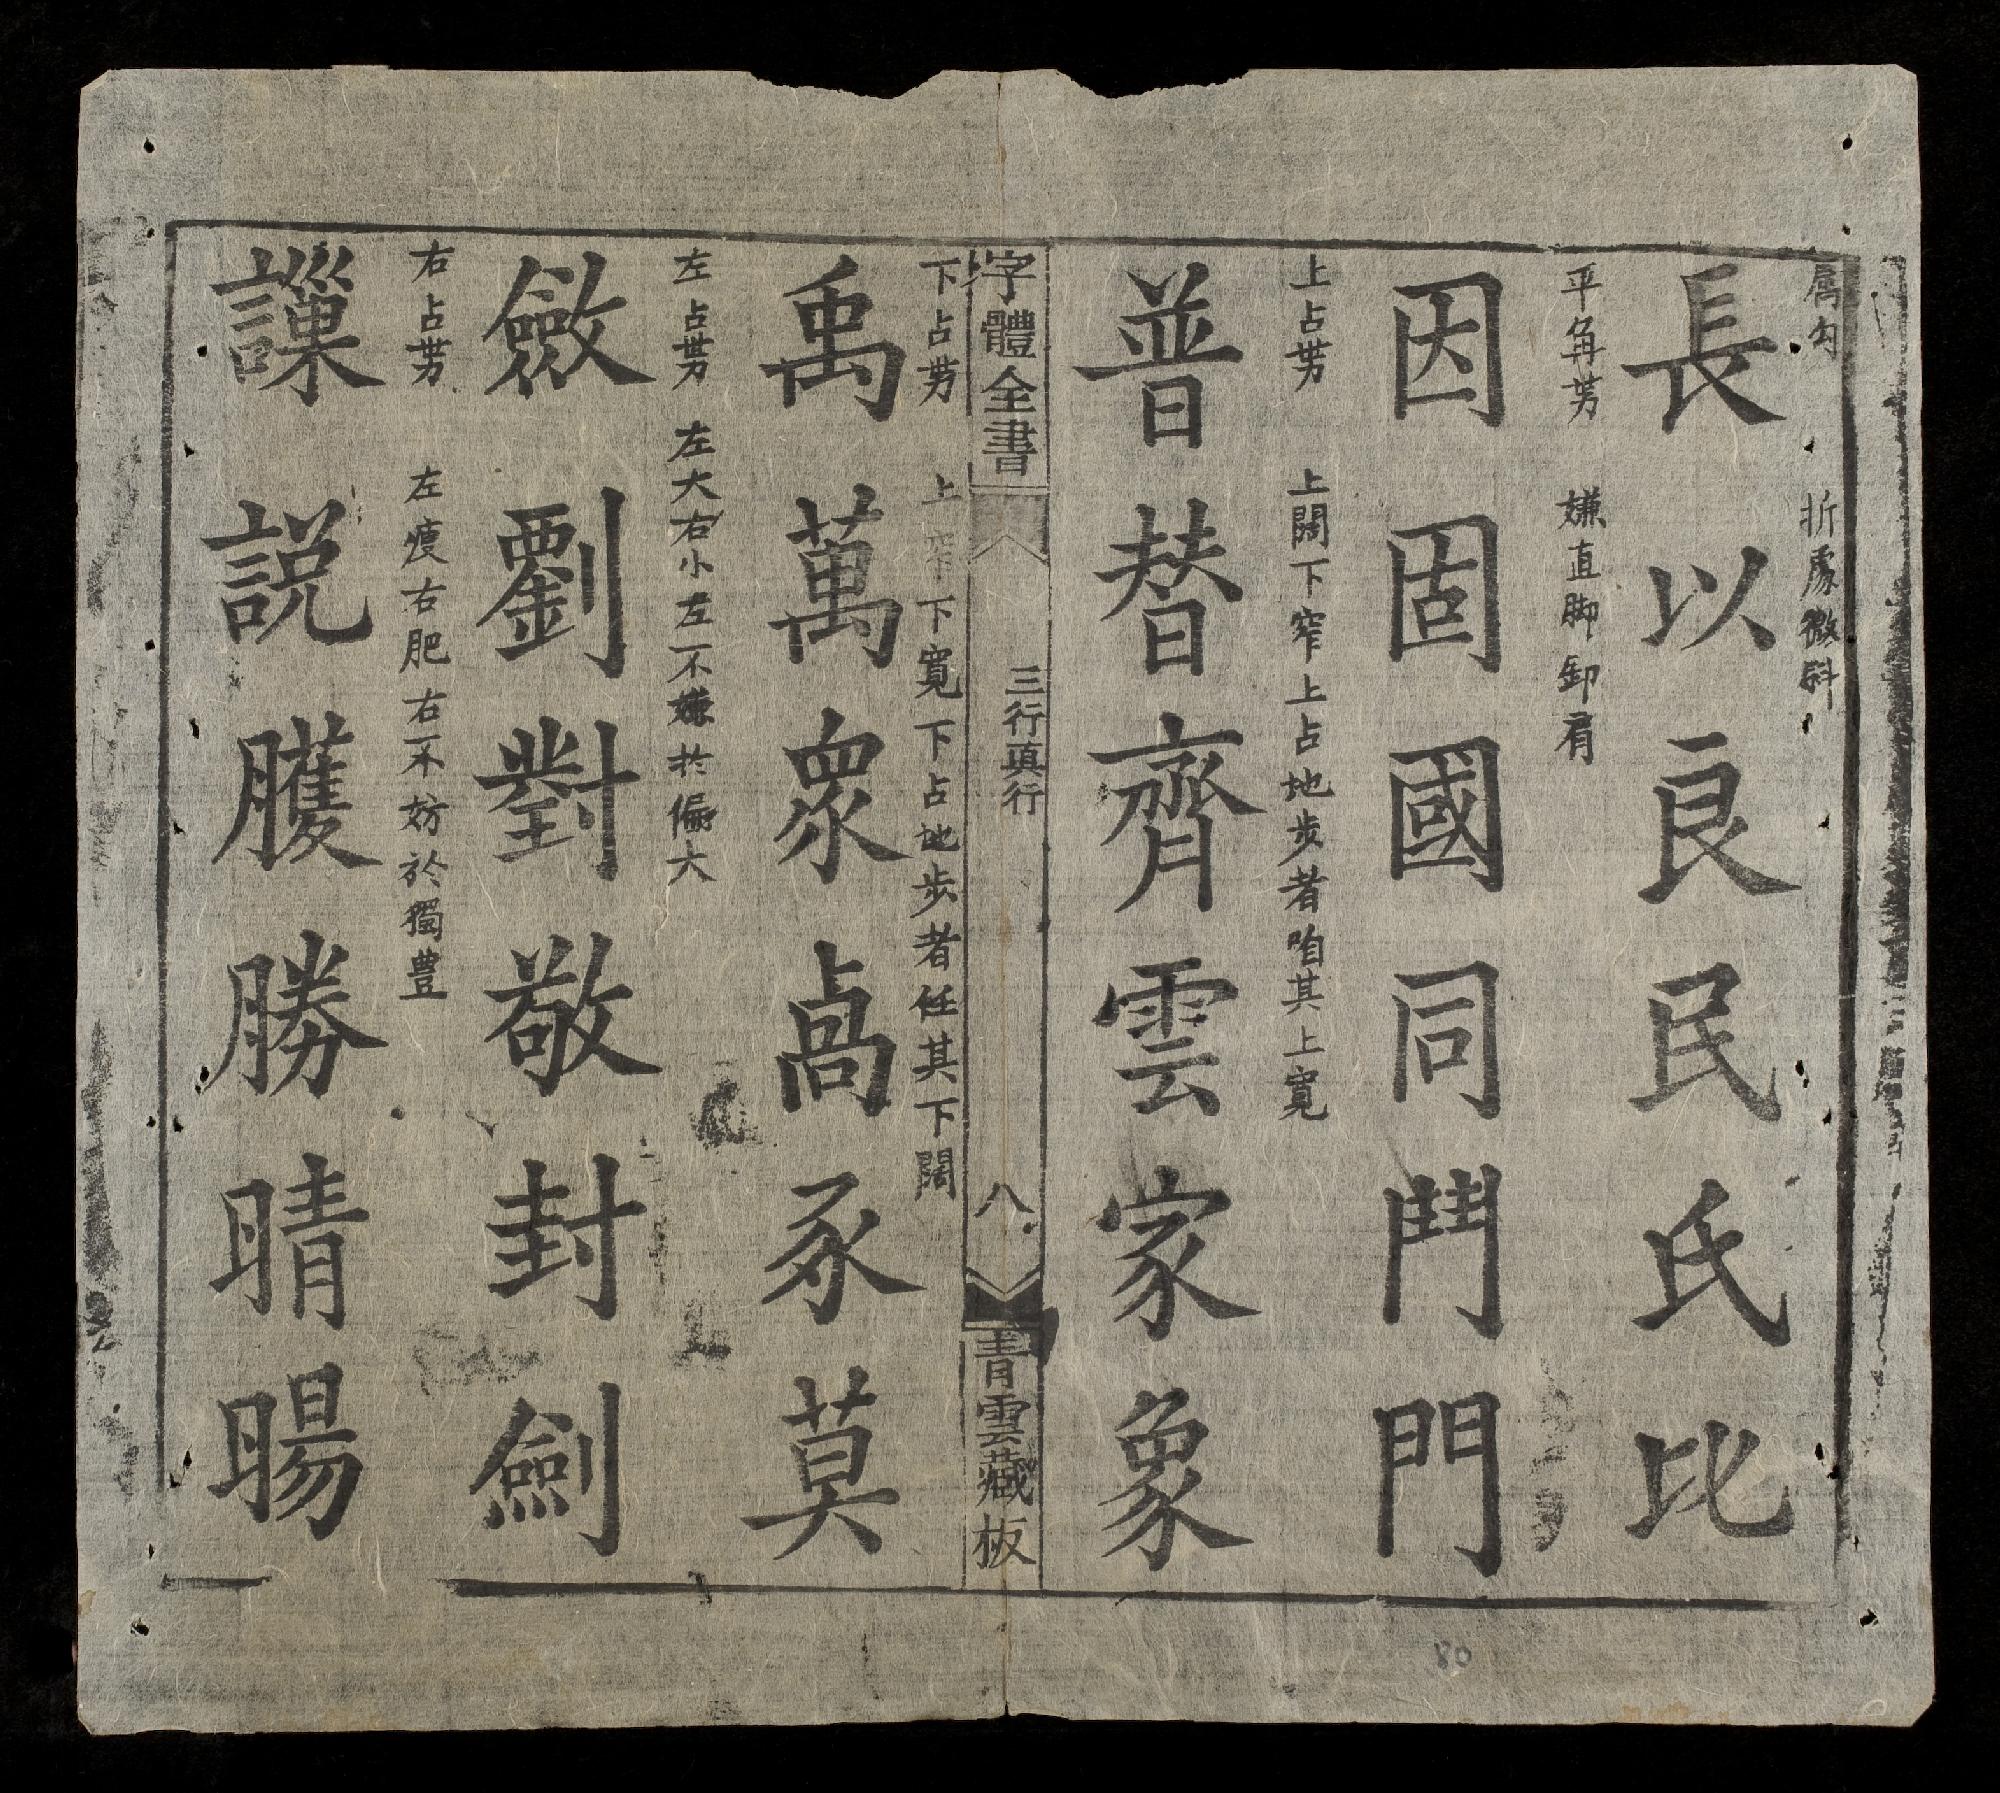 屑勾 折處微斜
長以良民氏比
平肩势 嫌直脚卸肩
因固國同鬥門
上占势 上闊下窄上占地步者咱其上寬
普替齊雲家象
字體全書 三行真行 八 青雲藏板
下占势 上窄下寬下占地步者任其下闊
禹萬眾卨豕莫
左占势 左大右小左不嫌於偏大
斂劉對敬封劍
右占势 左瘦右肥右不妨於獨豊
説臒勝晴暘
80